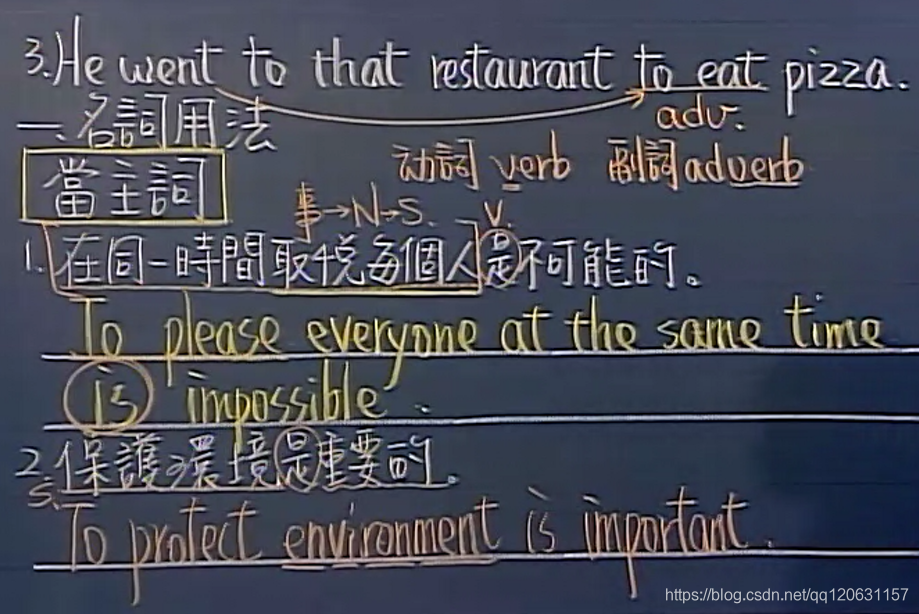 3. He went to that restaurant to eat pizza.
adv.
一、名詞用法
动詞 verb 副詞 adverb
當主詞
事→N→S. V.
1. 在同一時間取悅每個人是不可能的。
To please everyone at the same time
is impossible.
2. 保護環境是重要的。
S.
To protect environment is important.
https://blog.csdn.net/qq120631157